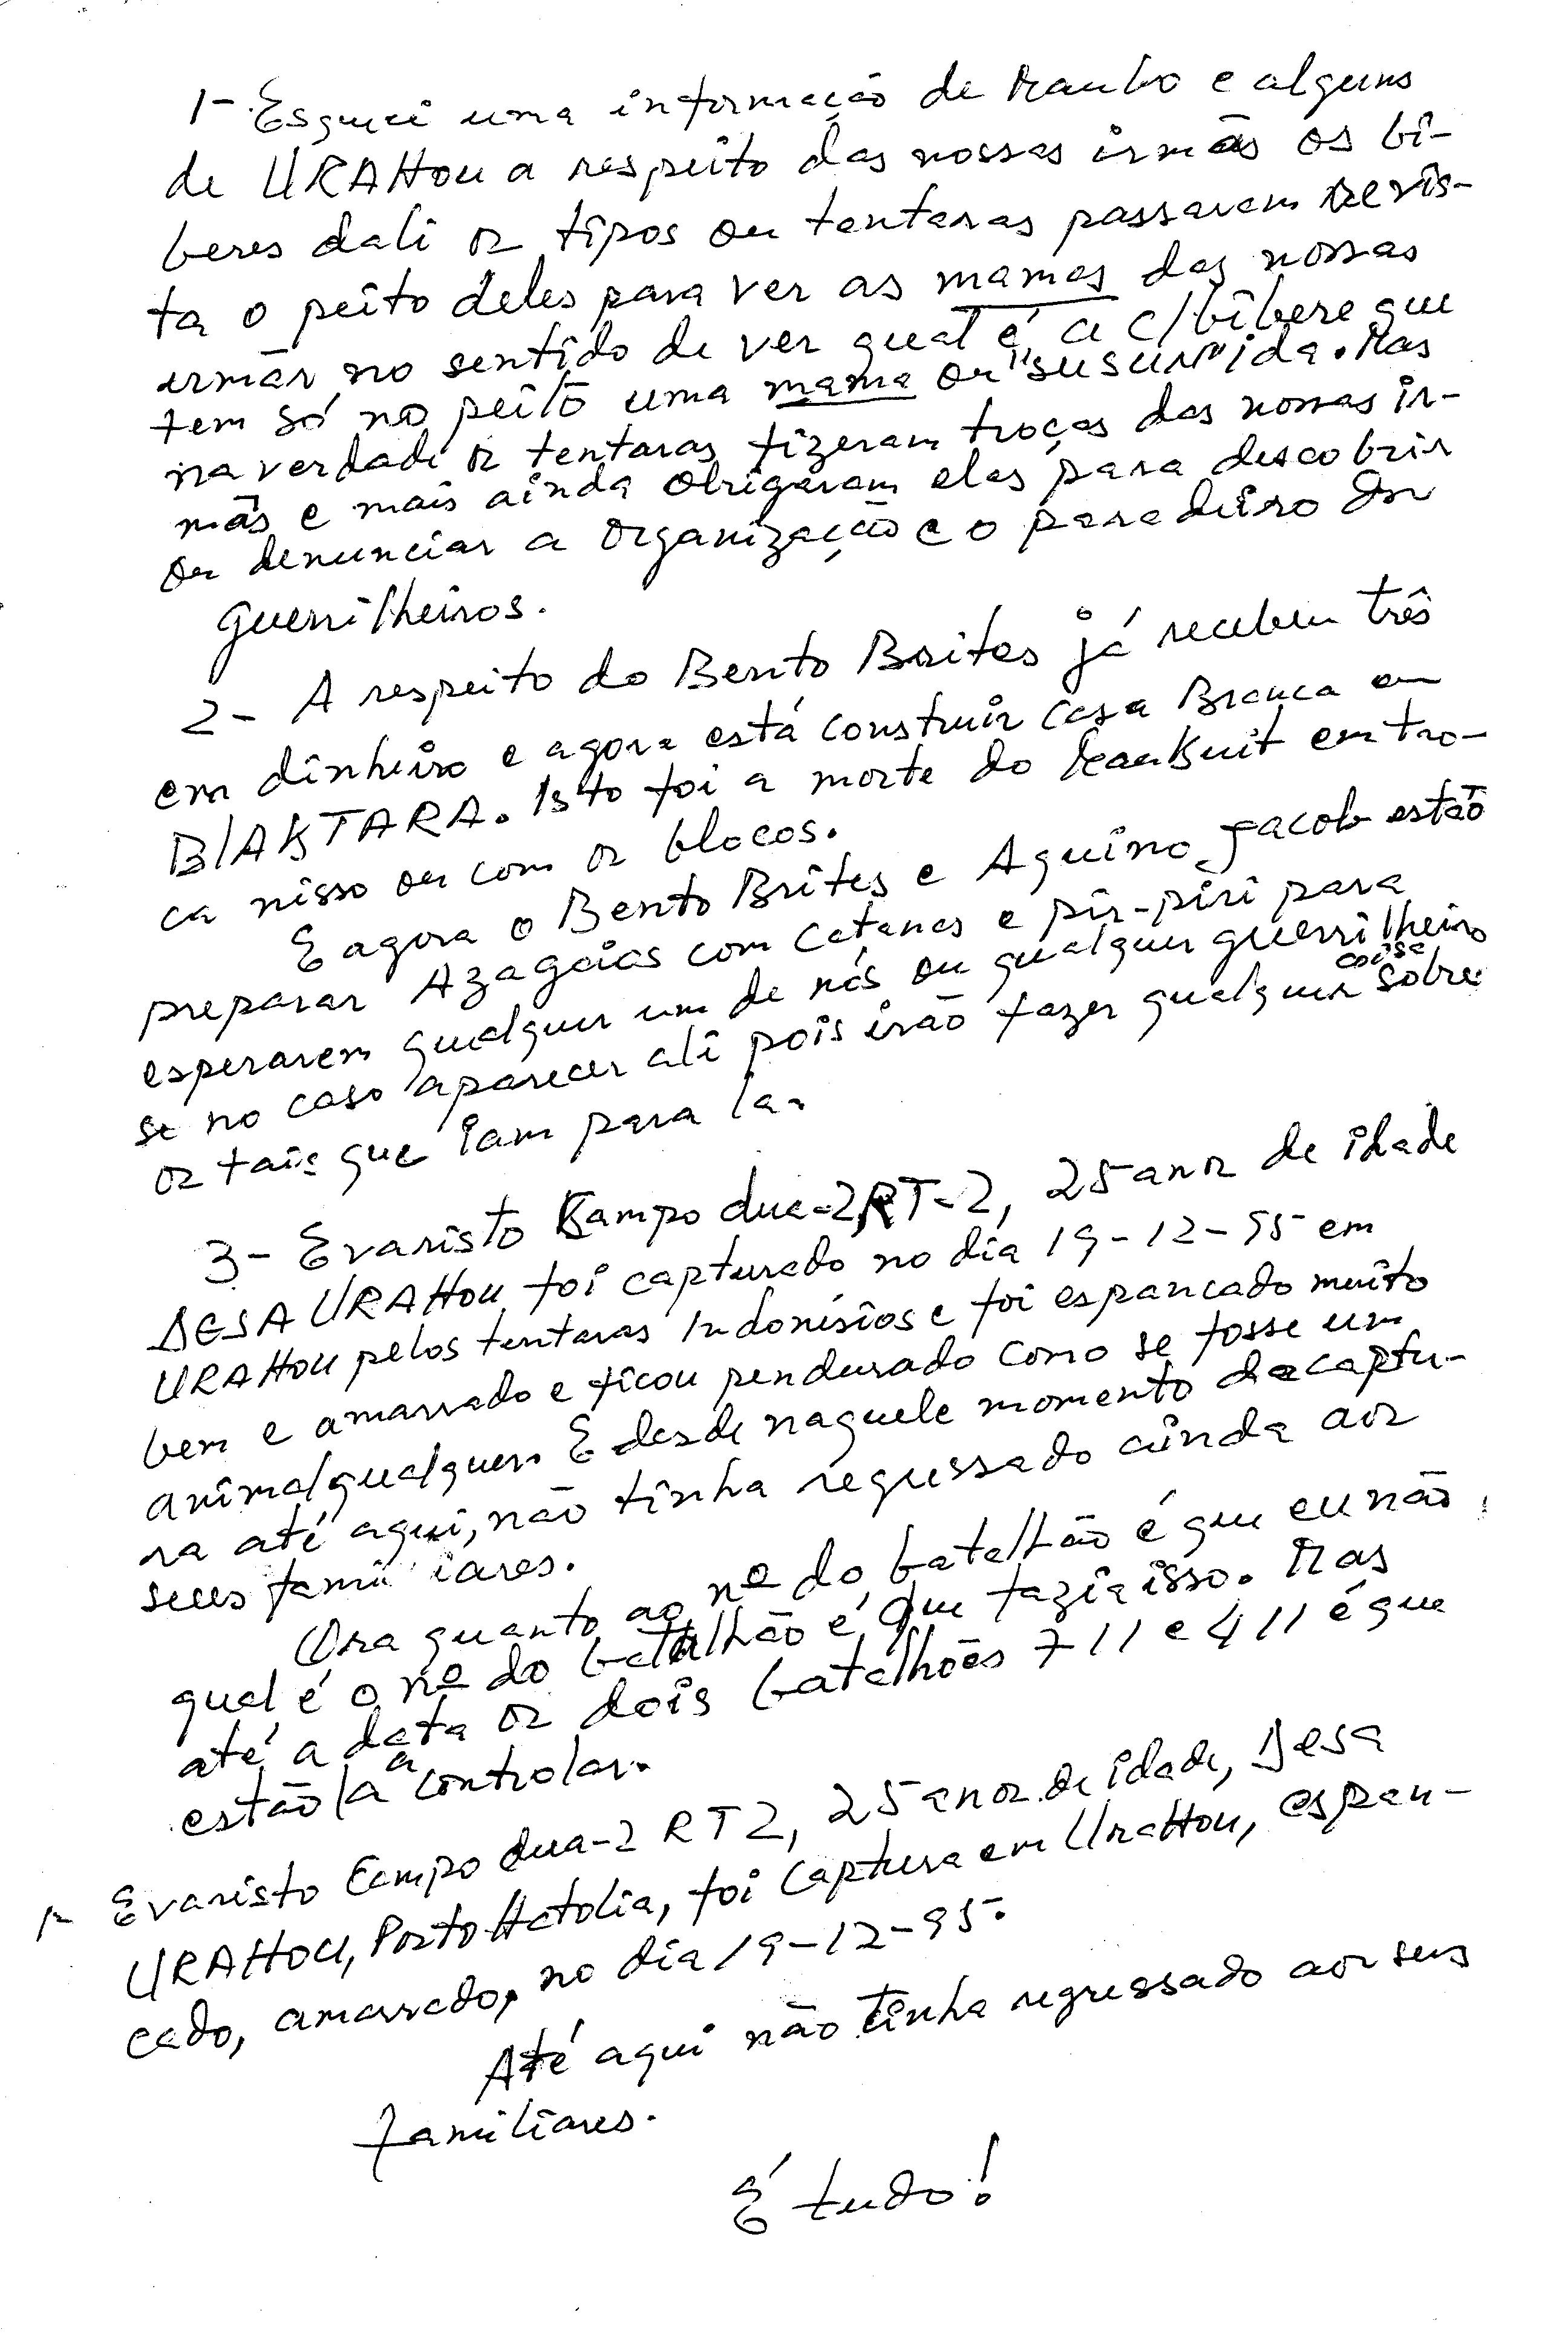 1- Esquici uma informação de Maubo e alguns
de URAHOU a respeito das nossas irmãs os bi-
beres dali os tipos ou tentaras passarem revis-
ta o peito deles para ver as mamas das nossas
irmãs no sentido de ver qual é a c/bibere que
tem só no peito uma mama ou "susuru" ida. Mas
na verdade os tentaras fizeram troças das nossas ir-
mãs e mais ainda obrigaram elas para descobrir
ou denunciar a organização e o paradeiro dos
guerrilheiros.
2- A respeito do Bento Brites já recebeu três
em dinheiro e agora está construir casa Branca em
BIAKTARA. Isto foi a morte do em tro-
ca nisso ou com os blocos.
E agora o Bento Brites e Aquino Jacob estão
preparar Azagaias com Catanas e pir-piri para
esperarem qualquer um de nós ou qualquer guerrilheiro
se no caso aparecer ali pois irão fazer qualquer coisa sobre
os tais que iam para la.
3- Evaristo Campo dua-2, RT-2, 25 anos de idade
DESA URAHOU foi capturado no dia 19-12-95 em
URAHOU pelos tentaras Indonésios e foi espancado muito
bem e amarrado e ficou pendurado como se fosse um
animal qualquer. E desde naquele momento da captu-
ra até aqui, não tinha regressado ainda aos
seus familiares.
Ora quanto ao nº do batalhão é que eu não
qual é o nº do batalhão é que fazia isso. Mas
até a data os dois batalhões 711 e 411 é que
estão la a controlar.
Evaristo Campo dua-2 RT2, 25 anos de idade, Desa
URAHOU, Posto Hatolia, foi captura em Urahou, espan-
cado, amarrado, no dia 19-12-95.
Até aqui não tinha regressado aos seus
familiares.
É tudo!